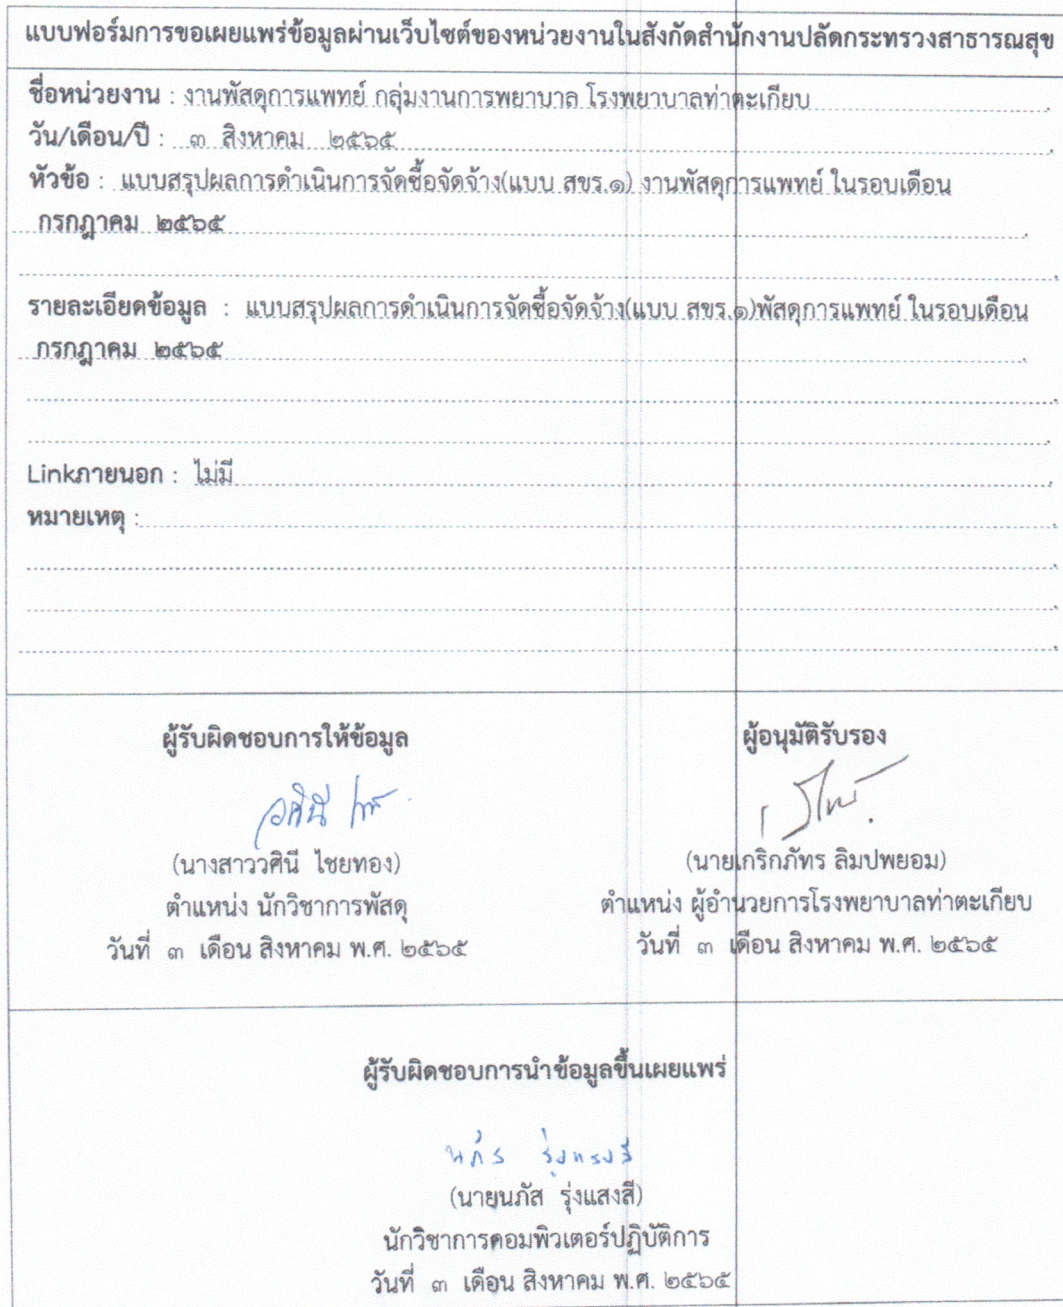 แบบฟอร์มการขอเผยแพร่ข้อมูลผ่านเว็บไซต์ของหน่วยงานในสังกัดสำนักงานปลัดกระทรวงสาธารณสุข
ชื่อหน่วยงาน : งานพัสดุการแพทย์ กลุ่มงานการพยาบาล โรงพยาบาลท่าตะเกียบ
วัน/เดือน/ปี : ๓ สิงหาคม ๒๕๖๕
หัวข้อ : แบบสรุปผลการดำเนินการจัดซื้อจัดจ้าง(แบบ สขร.๑) งานพัสดุการแพทย์ ในรอบเดือน
กรกฎาคม ๒๕๖๕
รายละเอียดข้อมูล : แบบสรุปผลการดำเนินการจัดซื้อจัดจ้าง(แบบ สขร.๑)พัสดุการแพทย์ ในรอบเดือน
กรกฎาคม ๒๕๖๕
Linkภายนอก : ไม่มี
หมายเหตุ :
ผู้รับผิดชอบการให้ข้อมูล
วศินี
(นางสาววศินี ไชยทอง)
ตำแหน่ง นักวิชาการพัสดุ
วันที่ ๓ เดือน สิงหาคม พ.ศ. ๒๕๖๕
ผู้อนุมัติรับรอง
(นายเกริกภัทร ลิมปพยอม)
ตำแหน่ง ผู้อำนวยการโรงพยาบาลท่าตะเกียบ
วันที่ ๓ เดือน สิงหาคม พ.ศ. ๒๕๖๕
ผู้รับผิดชอบการนำข้อมูลขึ้นเผยแพร่
นภัส รุ่งแสงสี
(นายนภัส รุ่งแสงสี)
นักวิชาการคอมพิวเตอร์ปฏิบัติการ
วันที่ ๓ เดือน สิงหาคม พ.ศ. ๒๕๖๕